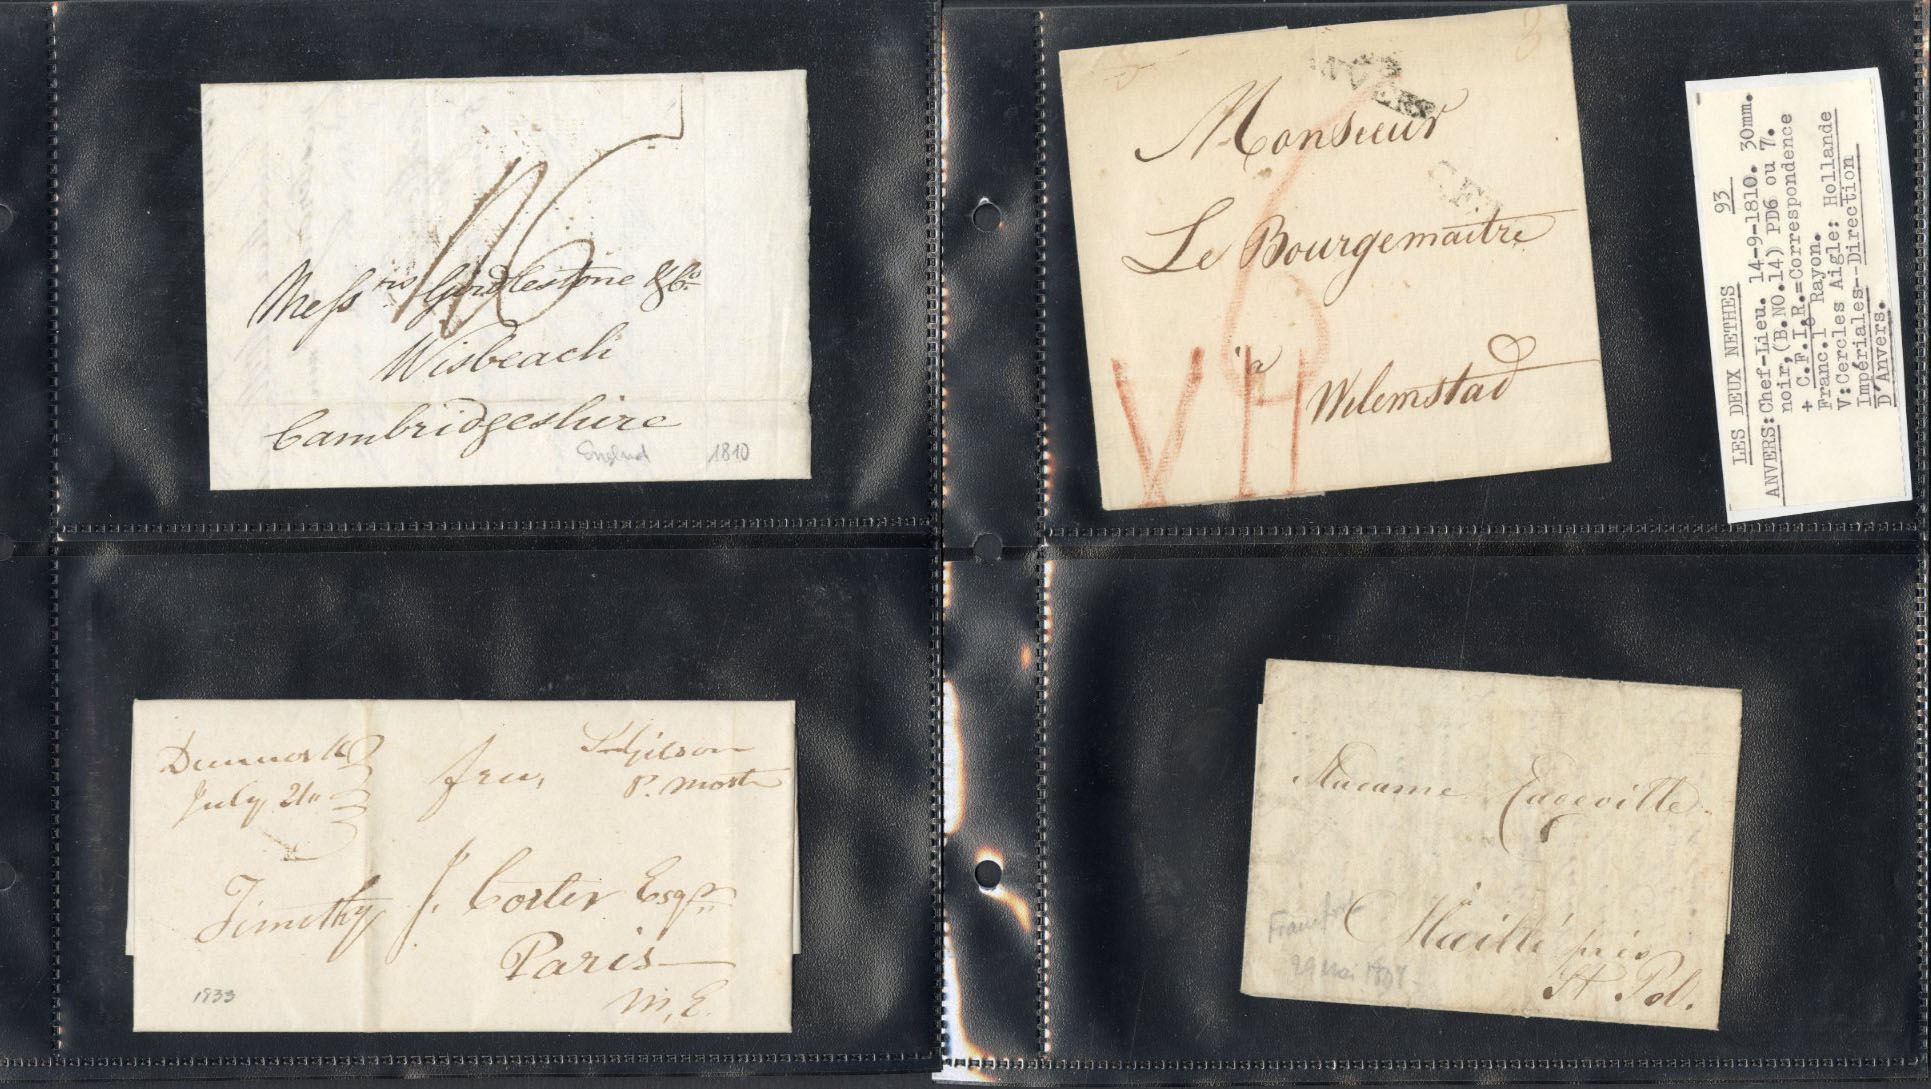 Mess.rs Girdlestone & Co.
Wisbeach
Cambridgeshire
England 1810
ANVERS
C.F.
Monsieur
Le Bourgemaitre
a
Wilemstad
VII
LES DEUX NETHES 93
ANVERS:Chef-Lieu. 14-9-1810. 30mm.
noir,(B.NO.14) PD6 ou 7.
+ C.F.I.R.=Correspondence
Franc.1e Rayon.
V:Cercles Aigle: Hollande
Impériales--Direction
D'Anvers.
Denmark
July 21
free,
P. Mast
Timothy J. Carter Esqr
Paris
M,E.
1833
Madame
Maillé près
St Pol.